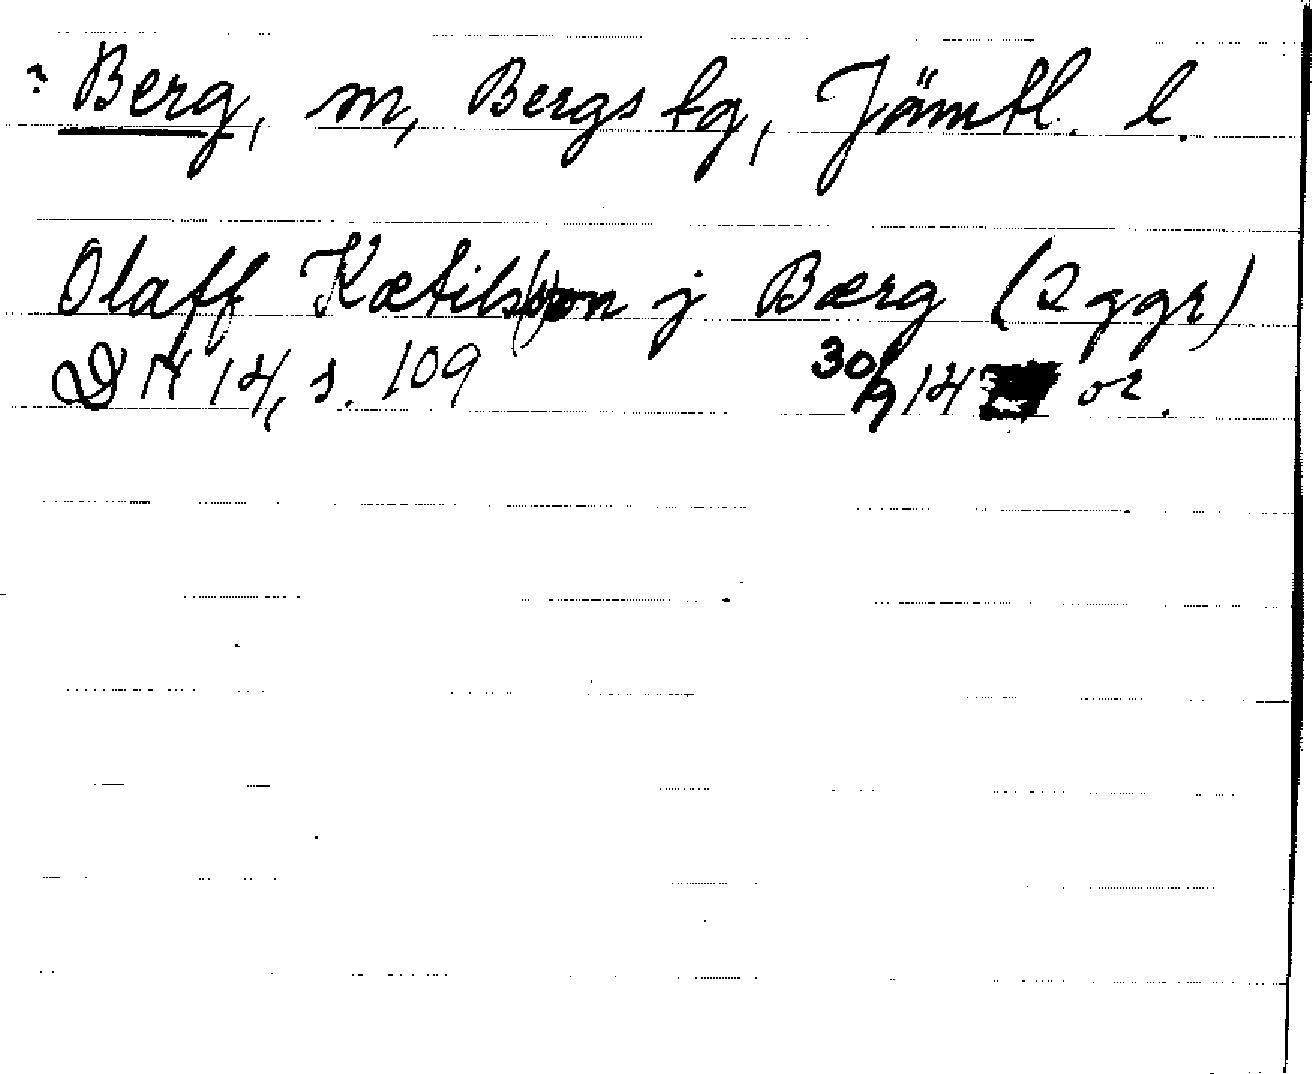 ? Berg, m, Bergs tg, Jämtl. l.
Olaff Kætilsson j Bærg (2 ggr)
DN 14, s. 109 30/9 14 02.